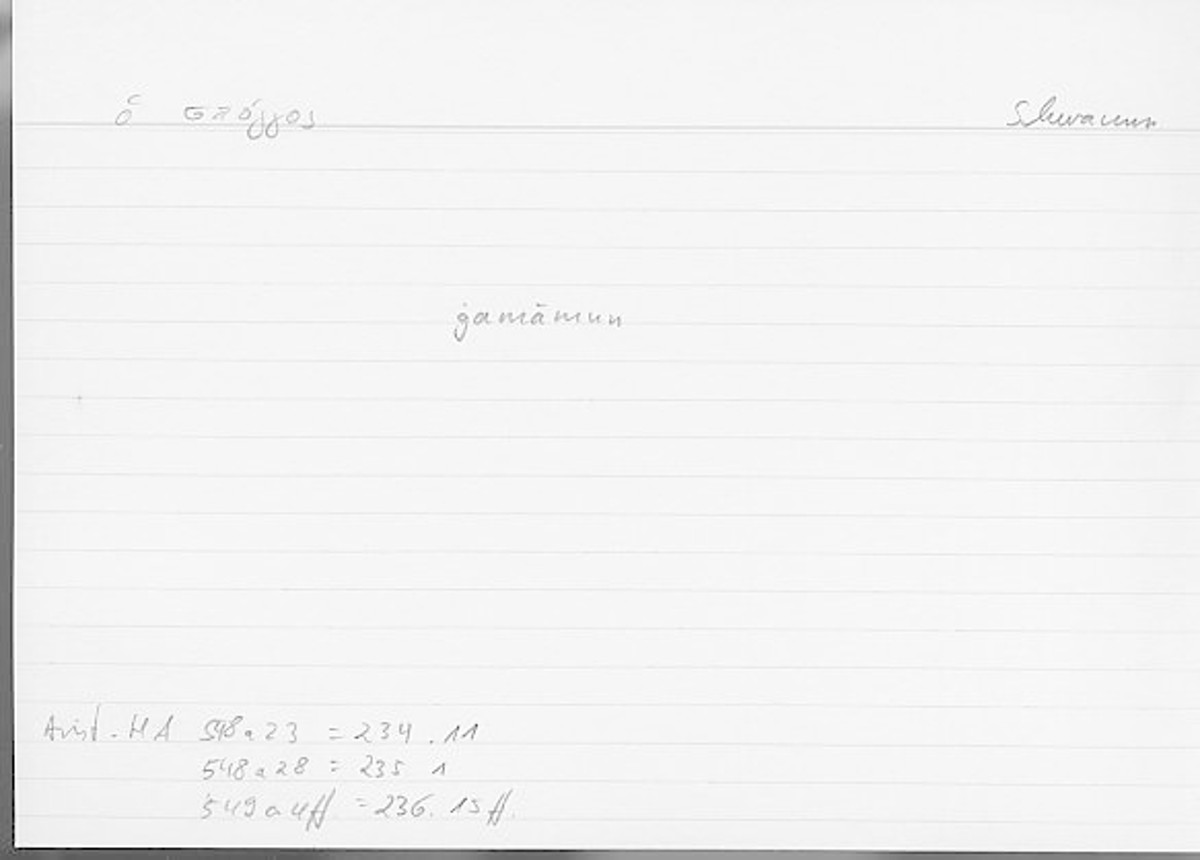 ὁ σπόγγος Schwamm
ġamāmun
Arist. HA 548a23 = 234.11
548a28 = 235 1
549a4ff = 236.15ff.